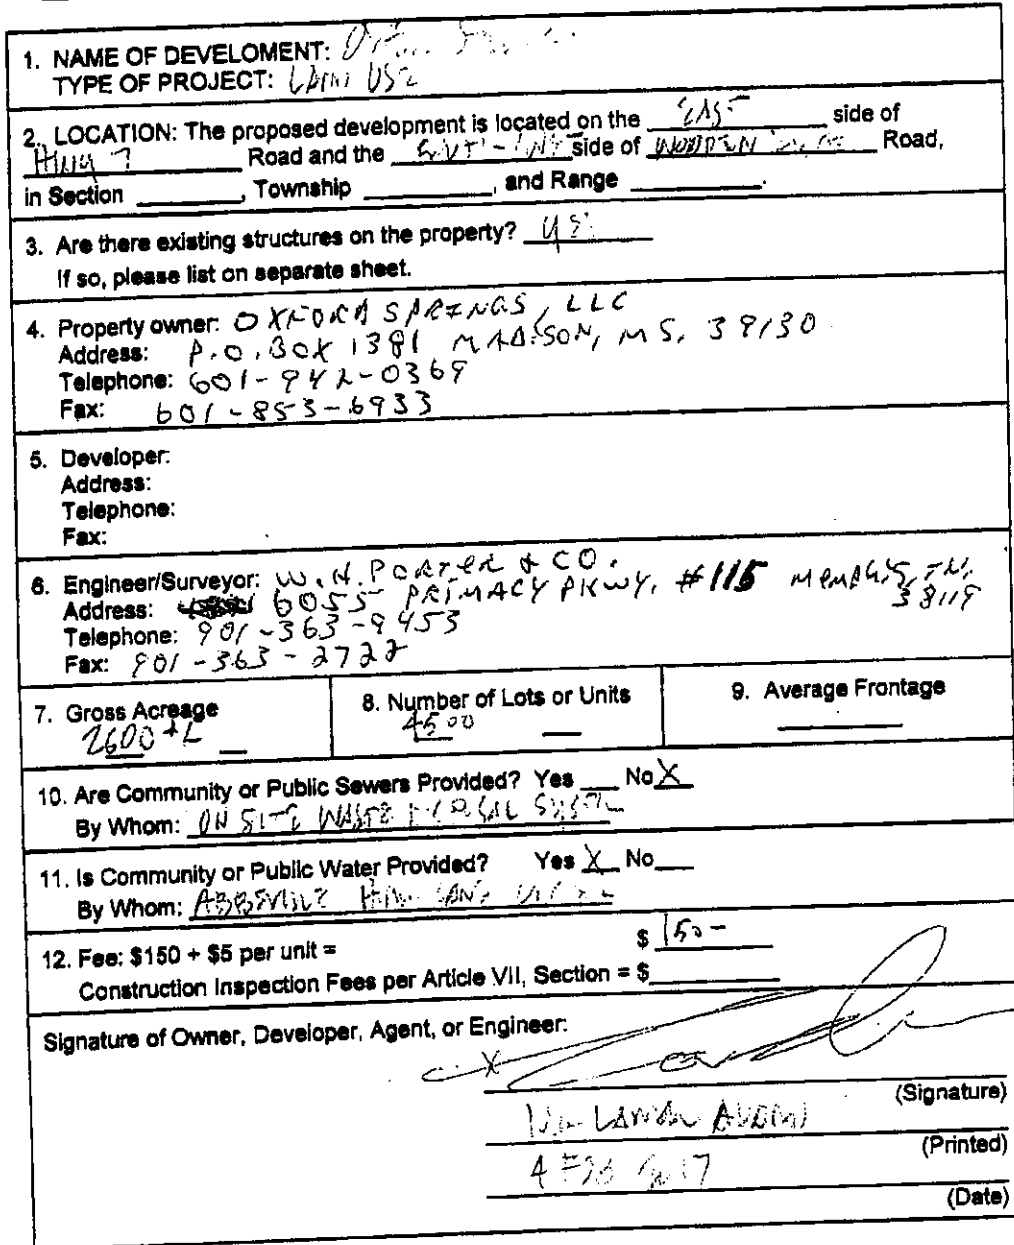 1. NAME OF DEVELOMENT:
TYPE OF PROJECT: LAND USE
2. LOCATION: The proposed development is located on the EAST side of
HWY 7 Road and the side of WOODSON Road,
in Section ______, Township ______, and Range ______.
3. Are there existing structures on the property? YES
If so, please list on separate sheet.
4. Property owner: OXFORD SPRINGS, LLC
Address: P.O. BOX 1381 MADISON, MS. 39130
Telephone: 601-942-0369
Fax: 601-853-6933
5. Developer:
Address:
Telephone:
Fax:
6. Engineer/Surveyor: W.H. PORTER & CO.
Address: 6055 PRIMACY PKWY, #115 MEMPHIS, TN. 38119
Telephone: 901-363-9453
Fax: 901-363-2722
7. Gross Acreage
2600 +/-
8. Number of Lots or Units
4500
9. Average Frontage
10. Are Community or Public Sewers Provided? Yes ___ No X
By Whom: ON SITE WASTE DISPOSAL SYSTEM
11. Is Community or Public Water Provided? Yes X No___
By Whom: ABBEVILLE
12. Fee: $150 + $5 per unit = $ 150-
Construction Inspection Fees per Article VII, Section = $______
Signature of Owner, Developer, Agent, or Engineer:
X
(Signature)
(Printed)
4 FEB
(Date)